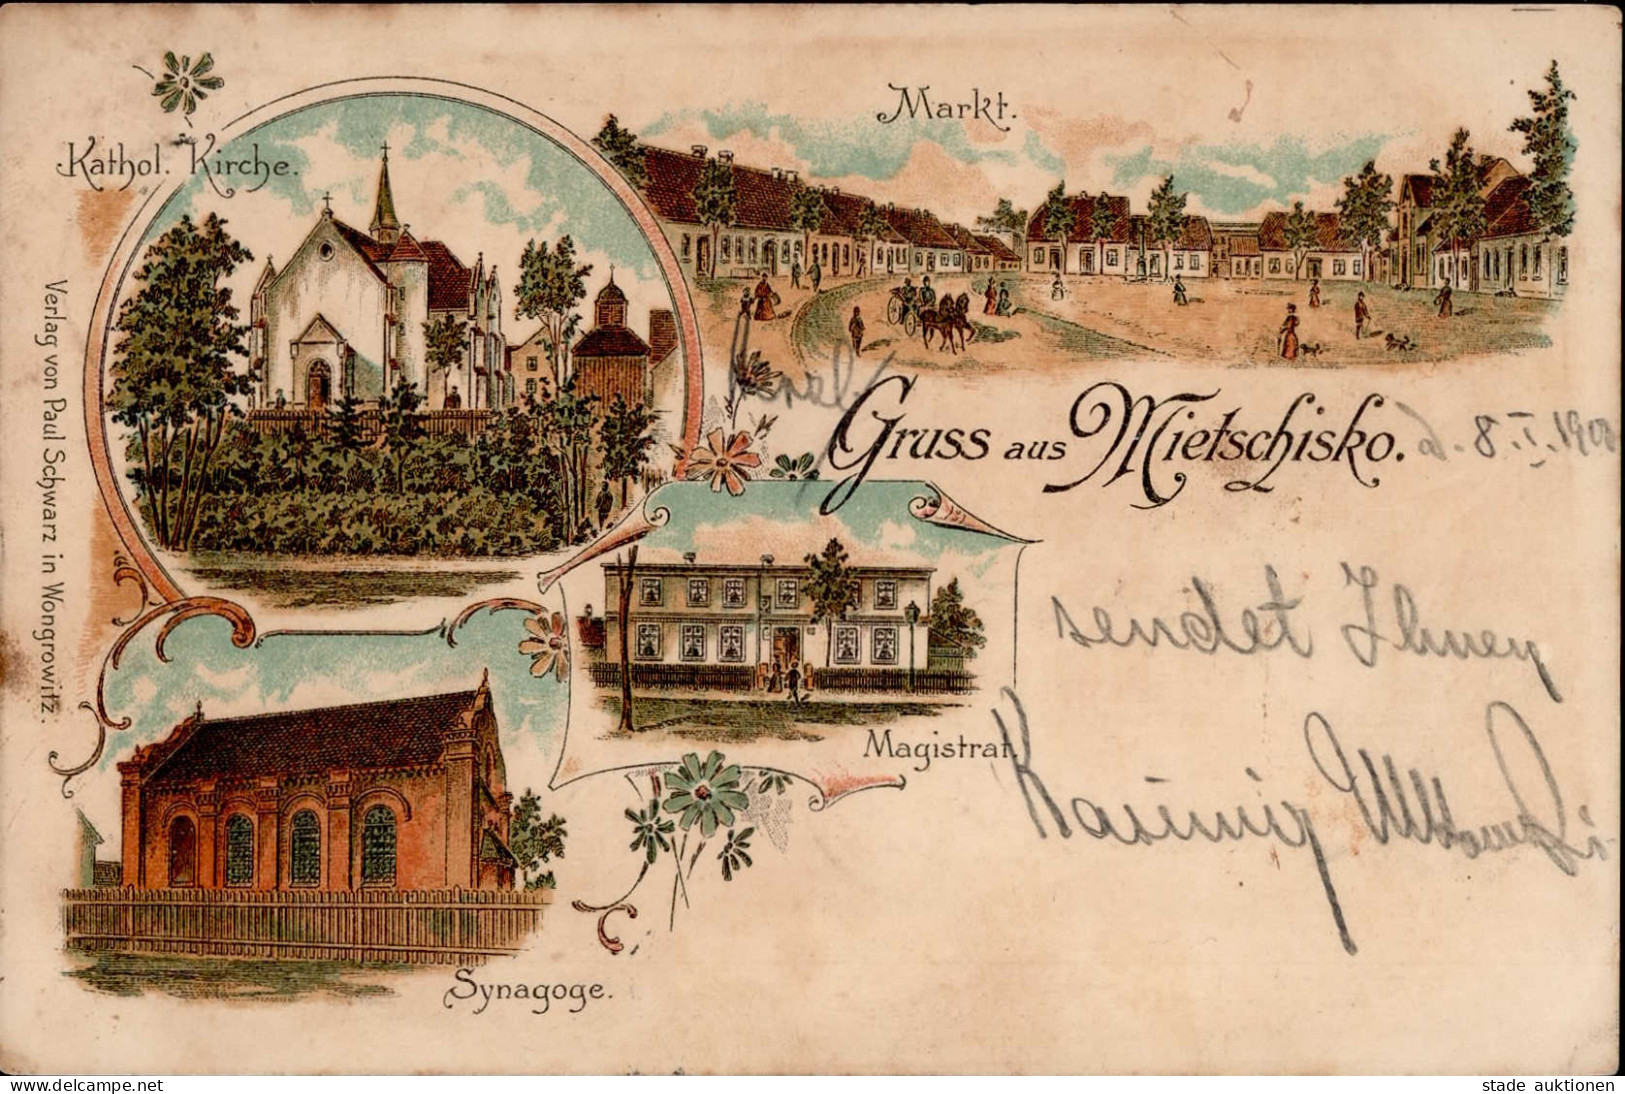 Markt.
Kathol. Kirche.
Gruss aus Mietschisko. d. 8.I.1900
sendet Ihnen
Magistrat.
Synagoge.
Verlag von Paul Schwarz in Wongrowitz.
delcampe.net
stade auktionen